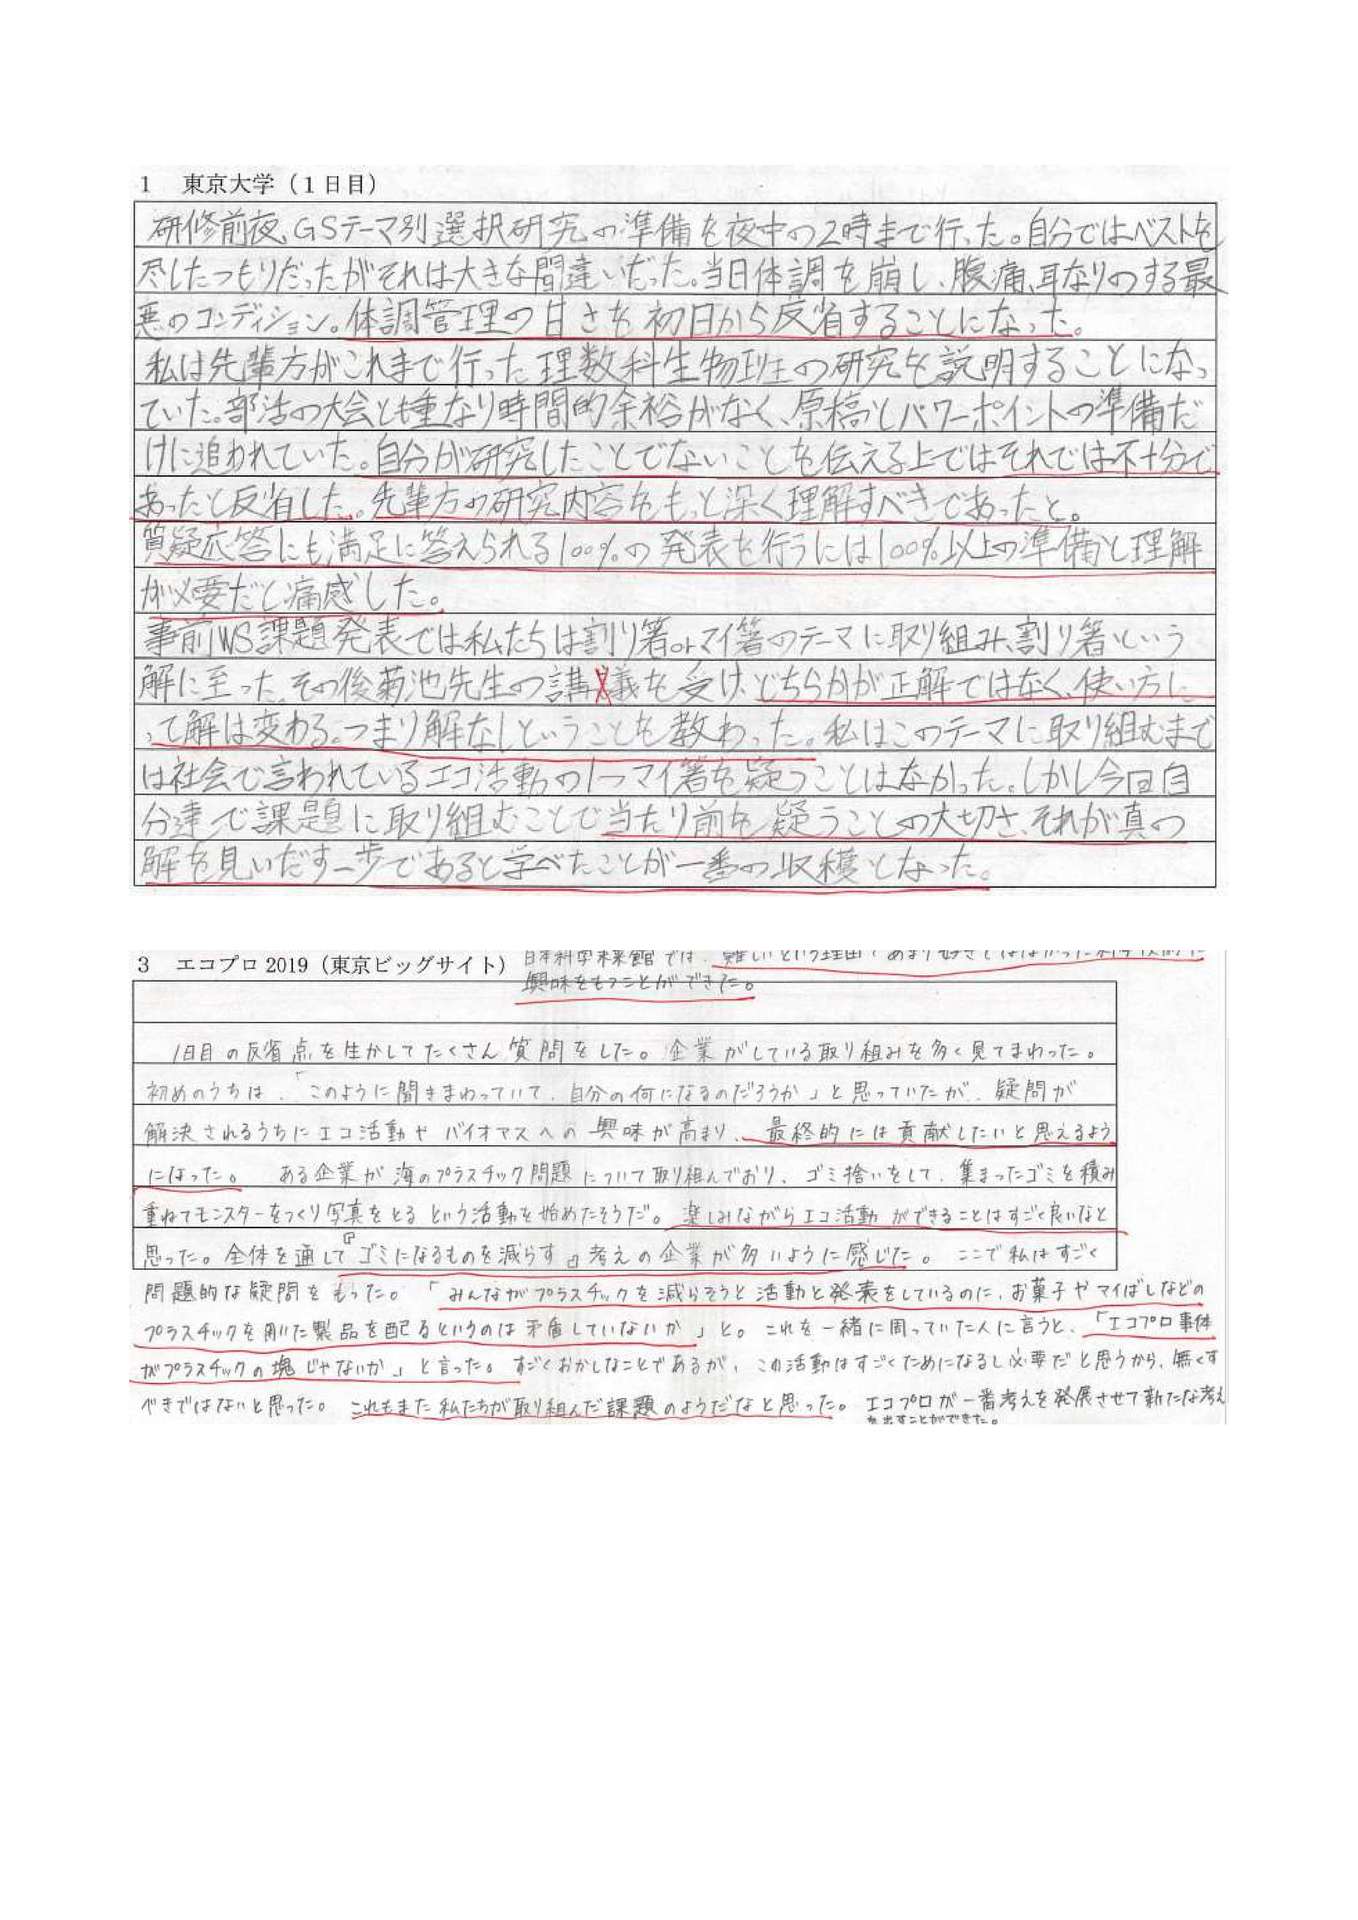 1 東京大学（1日目）
研修前夜、GSテーマ別選択研究の準備を夜中の2時まで行った。自分ではベストを
尽したつもりだったがそれは大きな間違いだった。当日体調を崩し、腹痛、耳なりのする最
悪のコンディション。体調管理の甘さを初日から反省することになった。
私は先輩方がこれまで行った理数科生物班の研究を説明することになっ
ていた。部活の大会とも重なり時間的余裕がなく、原稿とパワーポイントの準備だ
けに追われていた。自分が研究したことでないことを伝える上ではそれでは不十分で
あったと反省した。先輩方の研究内容をもっと深く理解すべきであったと。
質疑応答にも満足に答えられる100%の発表を行うには100%以上の準備と理解
が必要だと痛感した。
事前WS課題発表では私たちは割り箸orマイ箸のテーマに取り組み、割り箸という
解に至った。その後菊池先生の講義を受け、どちらかが正解ではなく、使い方に
って解は変わる。つまり解なしということを教わった。私はこのテーマに取り組むまで
は社会で言われているエコ活動の1つマイ箸を疑うことはなかった。しかし今回自
分達で課題に取り組むことで当たり前を疑うことの大切さ、それが真の
解を見いだす一歩であると学べたことが一番の収穫となった。
3 エコプロ2019（東京ビッグサイト）
日本科学未来館では、難しいという理由であまり好きではなかった科学技術に
興味をもつことができた。
1日目の反省点を生かしてたくさん質問をした。企業がしている取り組みを多く見てまわった。
初めのうちは、「このように聞きまわっていて、自分の何になるのだろうか」と思っていたが、疑問が
解決されるうちにエコ活動やバイオマスへの興味が高まり、最終的には貢献したいと思えるよう
になった。 ある企業が海のプラスチック問題について取り組んでおり、ゴミ拾いをして、集まったゴミを積み
重ねてモンスターをつくり写真をとるという活動を始めたそうだ。楽しみながらエコ活動ができることはすごく良いなと
思った。全体を通して『ゴミになるものを減らす』考えの企業が多いように感じた。 ここで私はすごく
問題的な疑問をもった。「みんながプラスチックを減らそうと活動と発表をしているのに、お菓子やマイばしなどの
プラスチックを用いた製品を配るというのは矛盾していないか」と。これを一緒に周っていた人に言うと、「エコプロ事体
がプラスチックの塊じゃないか」と言った。すごくおかしなことであるが、この活動はすごくためになるし必要だと思うから、無くす
べきではないと思った。これもまた私たちが取り組んだ課題のようだなと思った。エコプロが一番考えを発展させて新たな考え
を出すことができた。